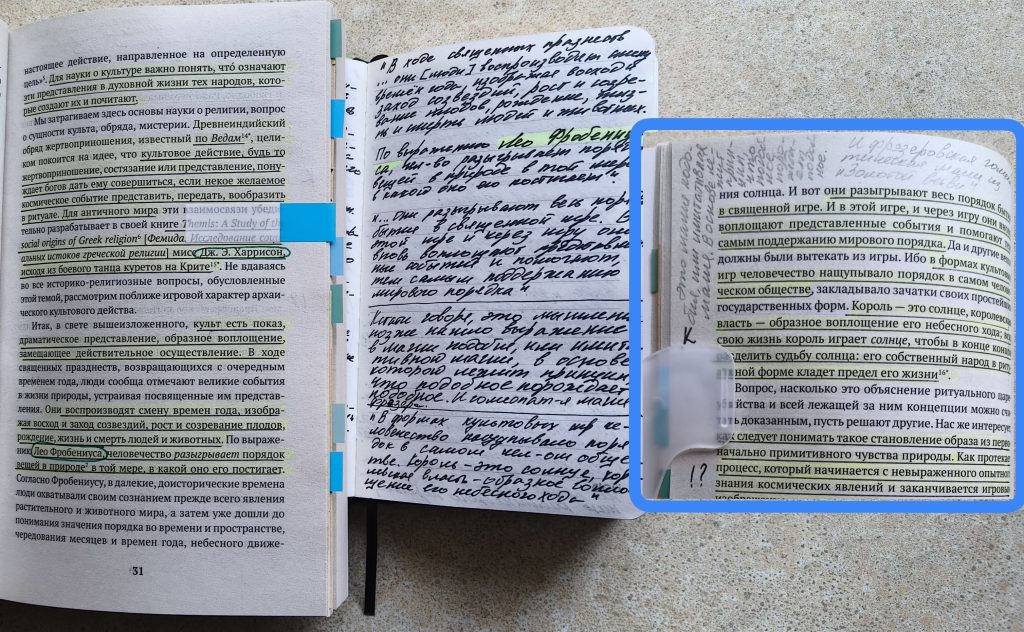 настоящее действие, направленное на определенную
цель»⁵. Для науки о культуре важно понять, что́ означают
эти представления в духовной жизни тех народов, кото-
рые создают их и почитают.
Мы затрагиваем здесь основы науки о религии, вопрос
о сущности культа, обряда, мистерии. Древнеиндийский
обряд жертвоприношения, известный по Ведам¹⁴*, цели-
ком покоится на идее, что культовое действие, будь то
жертвоприношение, состязание или представление, пону-
ждает богов дать ему совершиться, если некое желаемое
космическое событие представить, передать, вообразить
в ритуале. Для античного мира эти взаимосвязи убеди-
тельно разрабатывает в своей книге Themis: A Study of the
social origins of Greek religion⁶ [Фемида. Исследование соци-
альных истоков греческой религии] мисс Дж. Э. Харрисон,
исходя из боевого танца куретов на Крите¹⁵*. Не вдаваясь
во все историко-религиозные вопросы, обусловленные
этой темой, рассмотрим поближе игровой характер архаи-
ческого культового действа.
Итак, в свете вышеизложенного, культ есть показ,
драматическое представление, образное воплощение,
замещающее действительное осуществление. В ходе
священных празднеств, возвращающихся с очередным
временем года, люди сообща отмечают великие события
в жизни природы, устраивая посвященные им представ-
ления. Они воспроизводят смену времен года, изобра-
жая восход и заход созвездий, рост и созревание плодов,
рождение, жизнь и смерть людей и животных. По выраже-
нию Лео Фробениуса, человечество разыгрывает порядок
вещей в природе⁷ в той мере, в какой оно его постигает.
Согласно Фробениусу, в далекие, доисторические времена
люди охватывали своим сознанием прежде всего явления
растительного и животного мира, а затем уже дошли до
понимания значения порядка во времени и пространстве,
чередования месяцев и времен года, небесного движе-
31
"В ходе священных празднеств
... они [люди] воспроизводят смену
времён года, изображая восход и
заход созвездий, рост и созре-
вание плодов, рождение, жиз-
нь и смерть людей и животных.
По выражению Лео Фробениу-
са, чел-во разыгрывает порядок
вещей в природе в той мере,
в какой оно его постигает."
"... Они разыгрывают весь порядок
бытия в священной игре. В
этой игре и через игру они
вновь воплощают представлен-
ные события и помогают
тем самым поддержанию
мирового порядка"
Кстати говоря, это мышление
позже нашло выражение
в магии подобия, или имита-
тивной магии, в основе
которой лежит принцип
что подобное порождает
подобное. И гомеопат-я
"В формах культовых игр че-
ловечество нащупывало поря-
док в самом чел-ом общес-
тве. Король – это солнце, коро-
левская власть – образное вопло-
щение его небесного хода"
И фрэзеровская
"Золотой ветви"
ния солнца. И вот они разыгрывают весь порядок быт
в священной игре. И в этой игре, и через игру они вно
воплощают представленные события и помогают те
самым поддержанию мирового порядка. Да и другие вещ
должны были вытекать из игры. Ибо в формах культовы
игр человечество нащупывало порядок в самом челове
ческом обществе, закладывало зачатки своих простейши
государственных форм. Король — это солнце, королевска
власть — образное воплощение его небесного хода; вс
свою жизнь король играет солнце, чтобы в конце концо
разделить судьбу солнца: его собственный народ в риту
альной форме кладет предел его жизни¹⁶*.
Вопрос, насколько это объяснение ритуального царе
убийства и всей лежащей за ним концепции можно счи
тать доказанным, пусть решают другие. Нас же интересуе
как следует понимать такое становление образа из перво
начально примитивного чувства природы. Как протекае
процесс, который начинается с невыраженного опытног
знания космических явлений и заканчивается игровы
!?